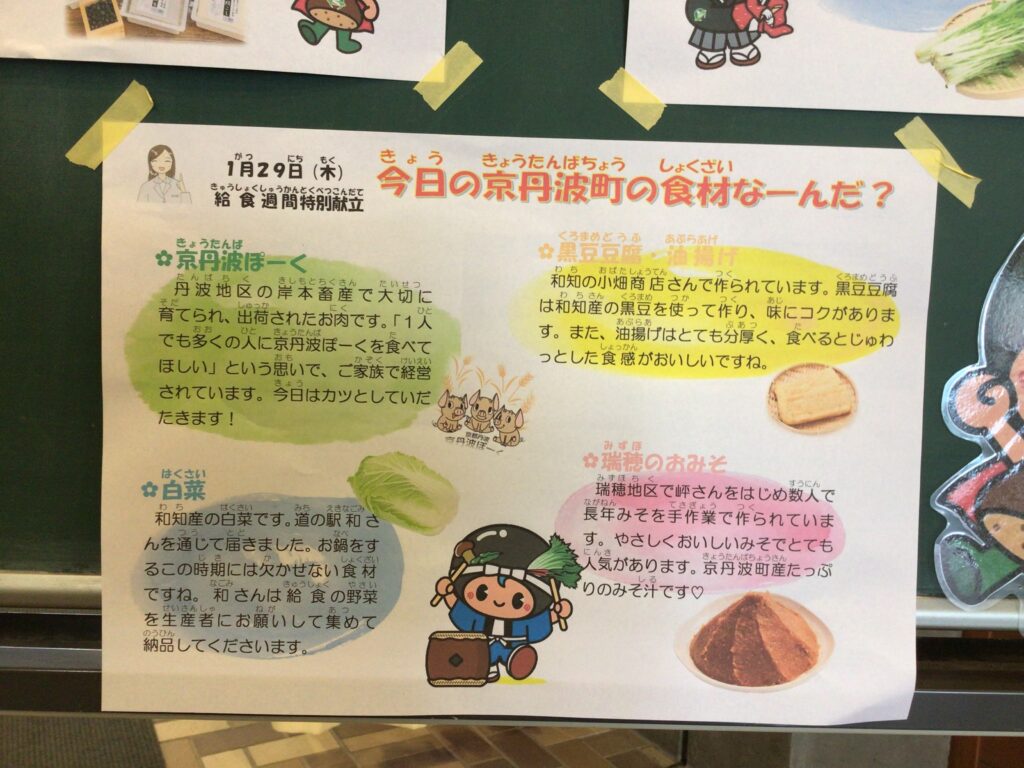 1月29日（木）
給食週間特別献立
今日の京丹波町の食材なーんだ？
✿京丹波ぽーく
丹波地区の岸本畜産で大切に
育てられ、出荷されたお肉です。「1人
でも多くの人に京丹波ぽーくを食べて
ほしい」という思いで、ご家族で経営
されています。今日はカツとしていただ
たきます！
京都丹波
京丹波ぽーく
✿黒豆豆腐・油揚げ
和知の小畑商店さんで作られています。黒豆豆腐
は和知産の黒豆を使って作り、味にコクがありま
す。また、油揚げはとても分厚く、食べるとじゅわ
っとした食感がおいしいですね。
✿白菜
和知産の白菜です。道の駅和さ
んを通じて届きました。お鍋をす
るこの時期には欠かせない食材
ですね。和さんは給食の野菜
を生産者にお願いして集めて
納品してくださいます。
✿瑞穂のおみそ
瑞穂地区で岼さんをはじめ数人で
長年みそを手作業で作られていま
す。やさしくおいしいみそでとても
人気があります。京丹波町産たっぷ
りのみそ汁です♡